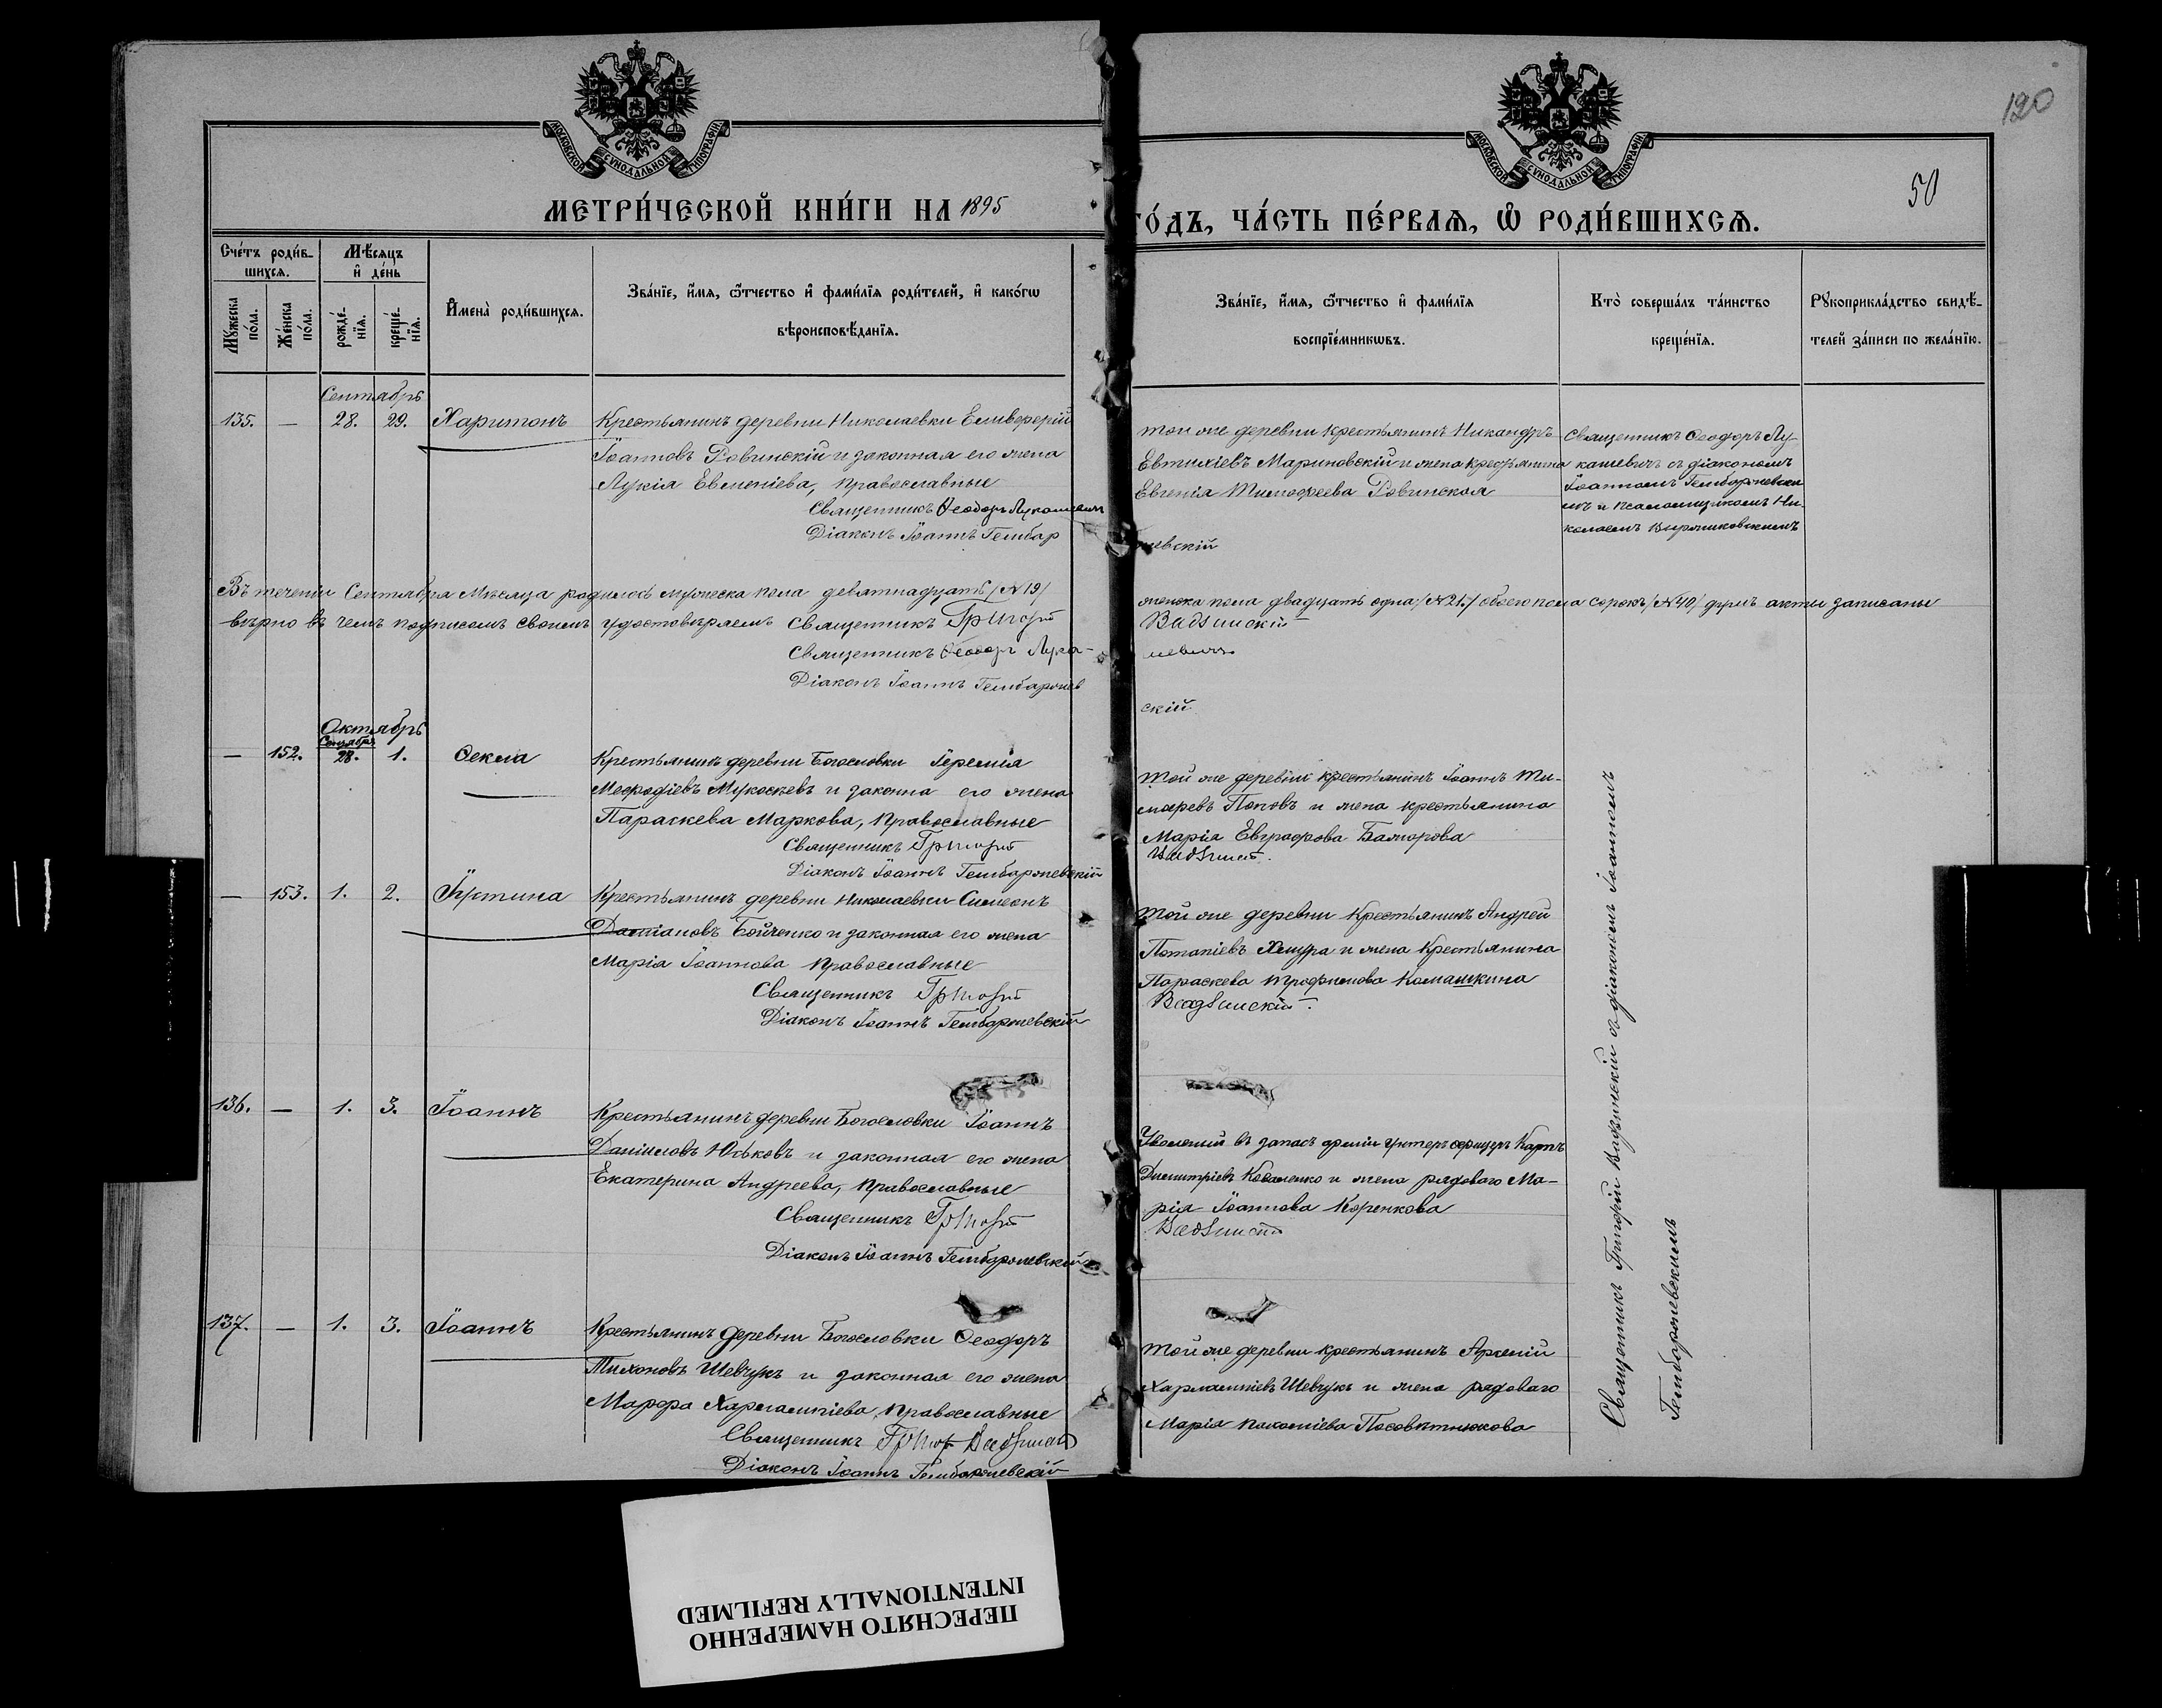 МОСКОВСКОЙ СѴНОДАЛЬНОЙ ТИПОГРАФІИ
МОСКОВСКОЙ СѴНОДАЛЬНОЙ ТИПОГРАФІИ
120
50
МЕТРИ́ЧЕСКОЙ КНИ́ГИ НА 1895
ГО́ДЪ, ЧА́СТЬ ПЕ́РВАѦ, Ѡ҆ РОДИ́ВШИХСѦ.
Сче́тъ роди́в-
шихсѧ.
Мꙋ́жеска по́ла.
Же́нска по́ла.
Мѣ́сѧцъ
и҆ де́нь
рожде́-
нїѧ.
креще́-
нїѧ.
И҆мена̀ роди́вшихсѧ.
Зва́нїе, и҆́мѧ, ѻ҆́тчество и҆ фами́лїѧ роди́телей, и҆ како́гѡ
вѣроисповѣ́данїѧ.
Зва́нїе, и҆́мѧ, ѻ҆́тчество и҆ фами́лїѧ
воспрїе́мникѡвъ.
Кто̀ соверша́лъ та́инство
креще́нїѧ.
Рꙋкоприкла́дство свидѣ́-
телей за́писи по жела́нїю.
Сентябрь
135. — 28. 29. Харитонъ
Крестьянинъ деревни Николаевки Елиѳверій
Іоанновъ Ровинскій и законная его жена
Лукія Евменіева, православные
Священникъ Ѳеодоръ Лукашевичъ
Діаконъ Іоаннъ Гембар
жевскій
той же деревни крестьянинъ Никандръ
Евтихіевъ Мариновскій и жена крестьянина
Евгенія Тимоѳеева Ровинская
Священникъ Ѳеодоръ Лу-
кашевичъ съ діакономъ
Іоанномъ Гембаржевски
мъ и псаломщикомъ Ни-
колаемъ
Въ теченіи Сентября Мѣсяца родилось мужеска пола девятнадцать /№19/
женска пола двадцать одна /№21./ обоего пола сорокъ /№40/ душъ акты записаны
вѣрно въ чемъ подписомъ своимъ удостовѣряемъ Священникъ Григорій
Вадзинскій
Священникъ Ѳеодоръ Лука-
шевичъ
Діаконъ Іоаннъ Гембаржев
скій
Октябрь
Сентябрь
— 152. 28. 1. Ѳекла
Крестьянинъ деревни Богословки Іеремія
Меѳодіевъ Мукоскевъ и законна его жена
Параскева Маркова, православные
Священникъ Григорій
Діаконъ Іоаннъ Гембаржевскій
Той же деревни крестьянинъ Іоаннъ Ти-
моѳеевъ Поповъ и жена крестьянина
Марія Евграфова Бажорова
Вадзинскій.
— 153. 1. 2. Іустина
Крестьянинъ деревни Николаевки Симеонъ
Даміановъ Бойченко и законная его жена
Марія Іоаннова православные
Священникъ Григорій
Діаконъ Іоаннъ Гембаржевскій
Той же деревни крестьянинъ Андрей
Потапіевъ Хмура и жена крестьянина
Параскева Трофимова Комашкина
Вадзинскій.
136. — 1. 3. Іоаннъ
Крестьянинъ деревни Богословки Іоаннъ
Даніиловъ Юськовъ и законная его жена
Екатерина Андреева, православные
Священникъ Григорій
Діаконъ Іоаннъ Гембаржевскій
Уволеный въ запасъ арміи унтеръ офицеръ Карпъ
Димитріевъ Коваленко и жена рядового Ма-
рія Іоаннова Коренкова
Вадзинскій
137. — 1. 3. Іоаннъ
Крестьянинъ деревни Богословки Ѳеодоръ
Тихоновъ Шевчукъ и законная его жена
Марфа Харлампіева, православные
Священникъ Григорій Вадзинскій
Діаконъ Іоаннъ Гембаржевскій
Той же деревни крестьянинъ Арсеній
Харлампіевъ Шевчукъ и жена рядового
Марія Пахоміева Посовѣтнюкова
Священникъ Григорій Вадзинскій съ діакономъ Іоанномъ
Гембаржевскимъ
ПЕРЕСНЯТО НАМЕРЕННО
INTENTIONALLY REFILMED